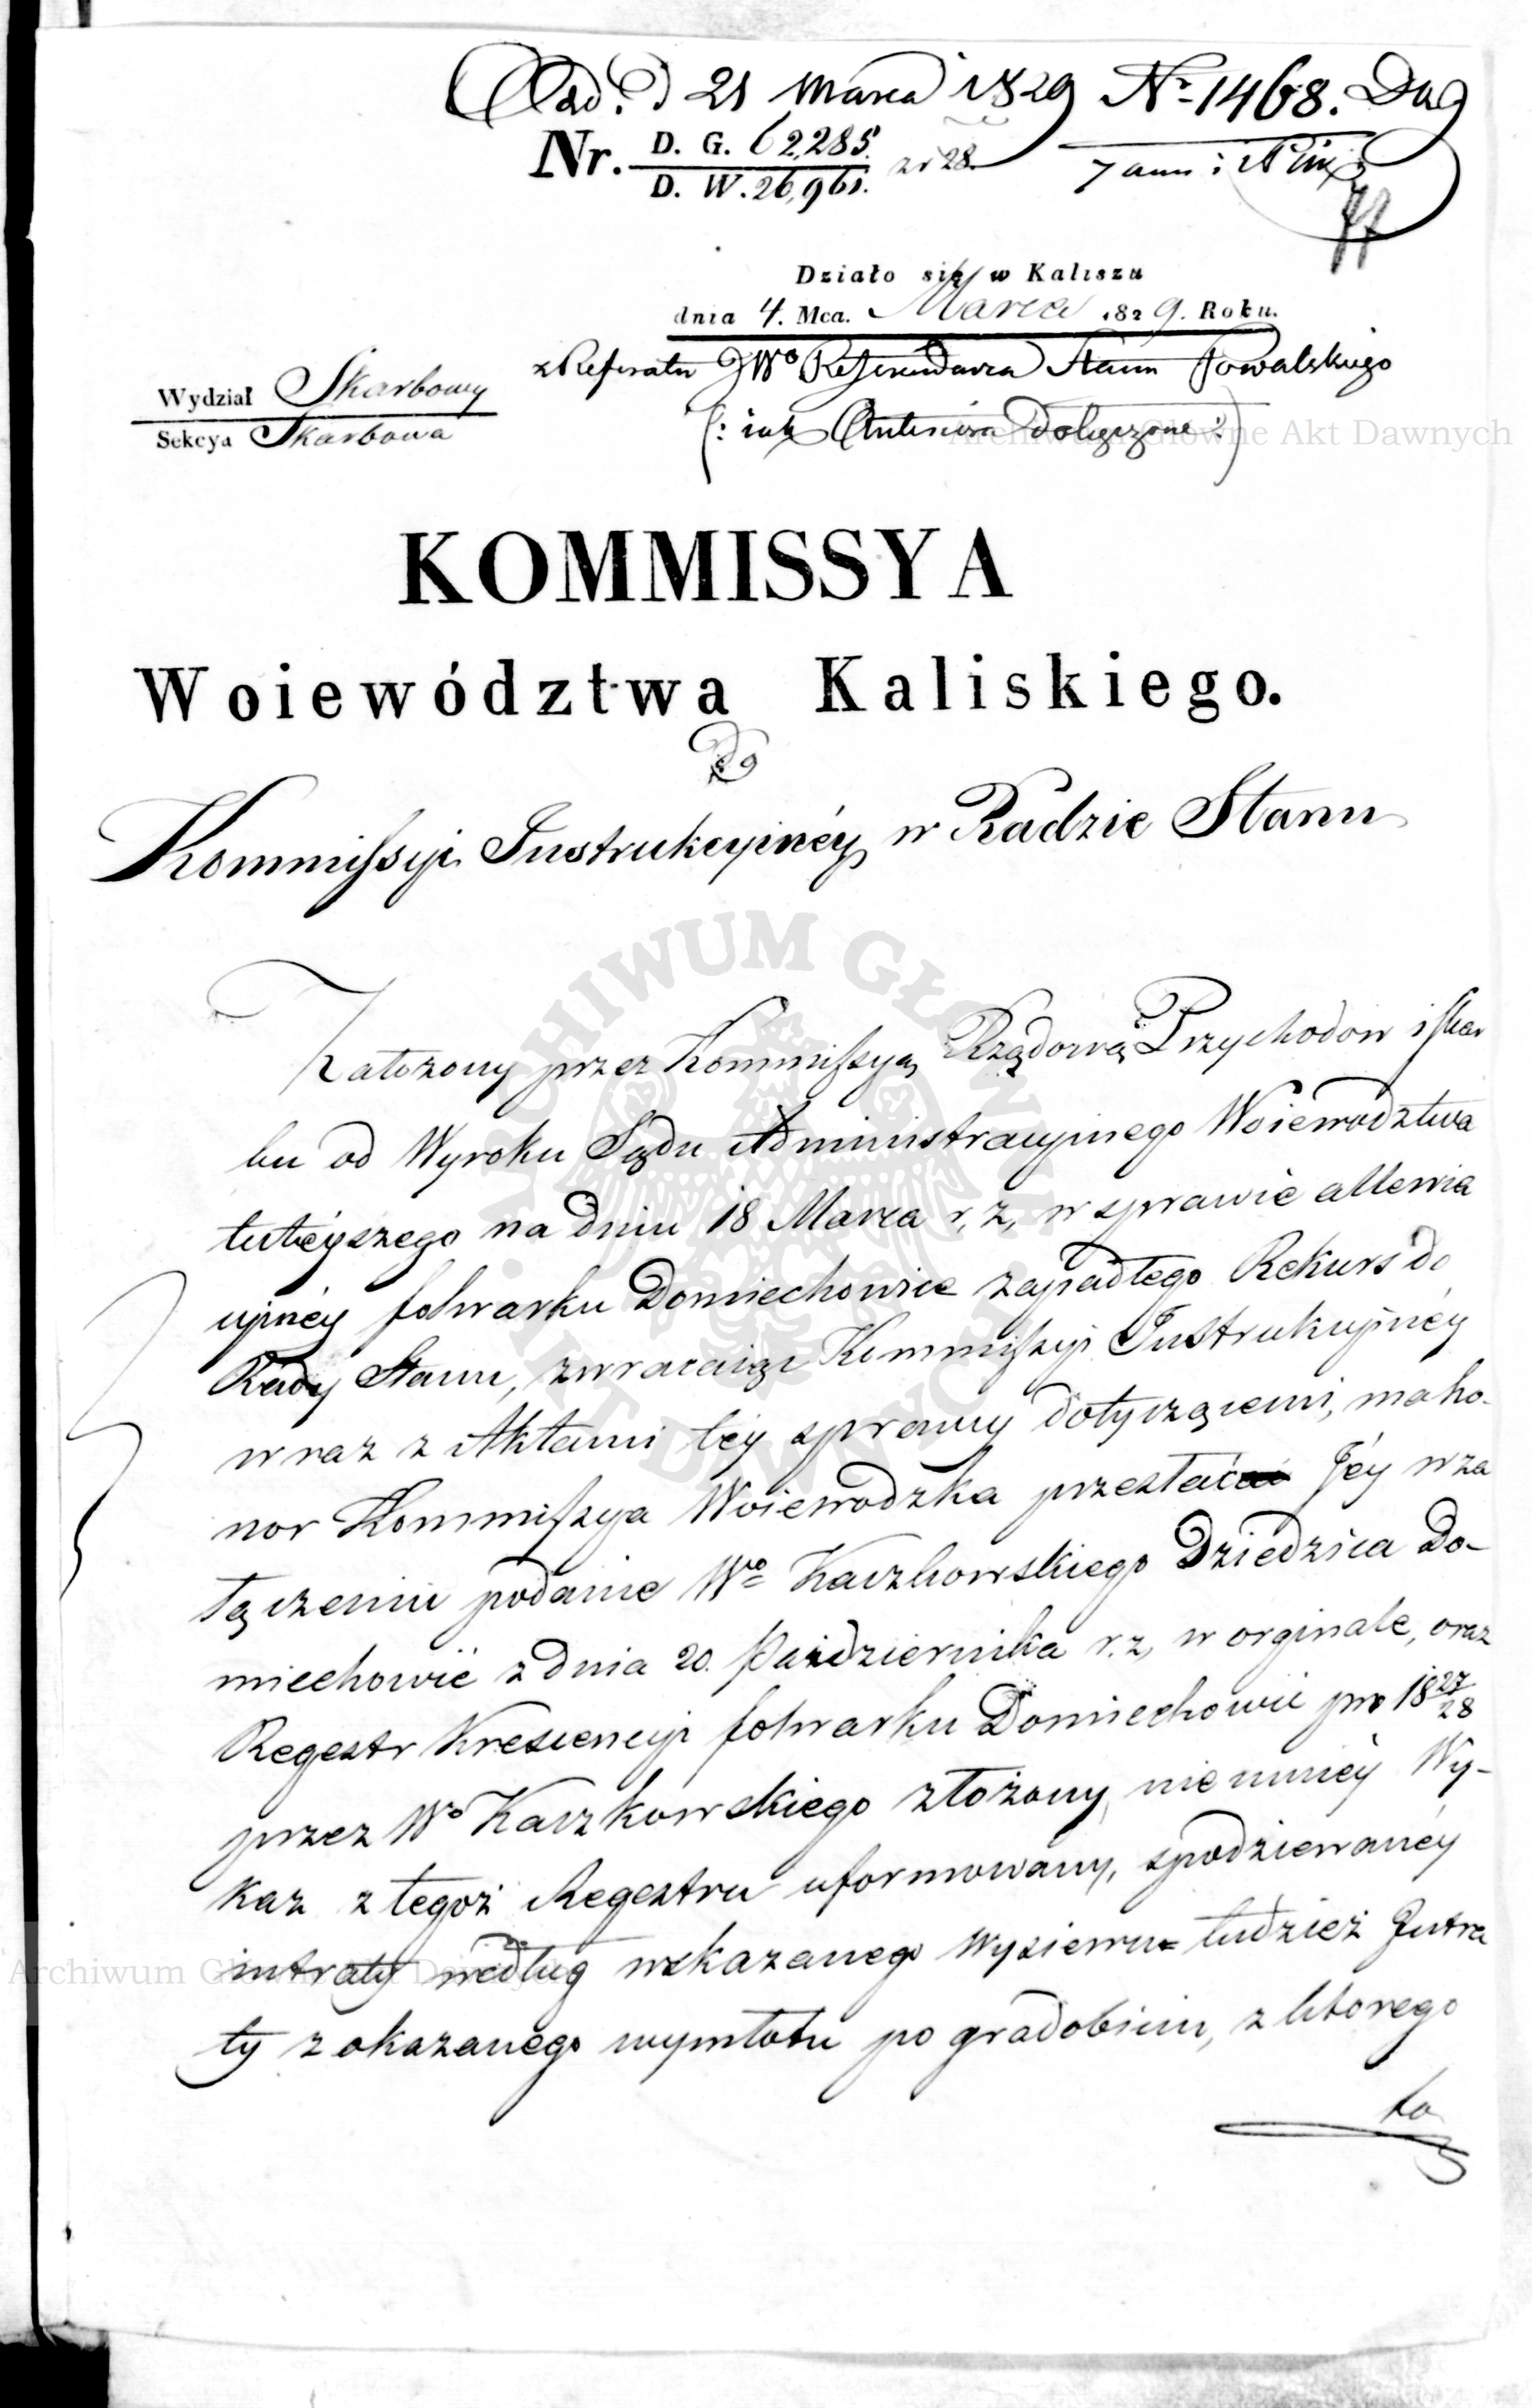 Odd. d 21 Marca 1829 No 1468. Dag
Nr. D. G. 62,285. z r 28.
D. W. 26,961.
7 ann:
Działo się w Kaliszu
dnia 4. Mca. Marca 1829. Roku.
z Referatu JWo Referendarza Stanu Kowalskiego
Wydział Skarbowy
Sekcya Skarbowa
(: iuż dołączone :)
KOMMISSYA
Woiewództwa Kaliskiego.
do
Kommissyi Instrukcyinéy w Radzie Stanu
Założony przez Kommissyą Rządową Przychodow i skar
bu od Wyroku Sądu Administracyinego Woiewodztwa
tuteyszego na dniu 18 Marca r. z. w sprawie allewia
cyinéy folwarku Domiechowice zapadłego Rekurs do
Rady Stanu, zwracaiąc Kommissyi Instrukcyinéy
wraz z Aktami téy sprawy dotyczącemi, ma ho-
nor Kommissya Woiewodzka przesłać Jéy w za
łączeniu podanie Wo Kaczkowskiego Dziedzica Do-
miechowic z dnia 20. Października r. z. w orginale, oraz
Regestr Krescencyi folwarku Domiechowic pro 1827/28
przez Wo Kaczkowskiego złożony, niemniéy Wy-
kaz z tegoż Regestru uformowany, spodziewanéy
intraty według wskazanego wysiewu tudzież Intra
ty z okazanego wymłotu po gradobiciu, z ktorego
to
Archiwum Główne Akt Dawnych
ARCHIWUM GŁÓWNE AKT DAWNYCH
Archiwum Główne Akt Dawnych